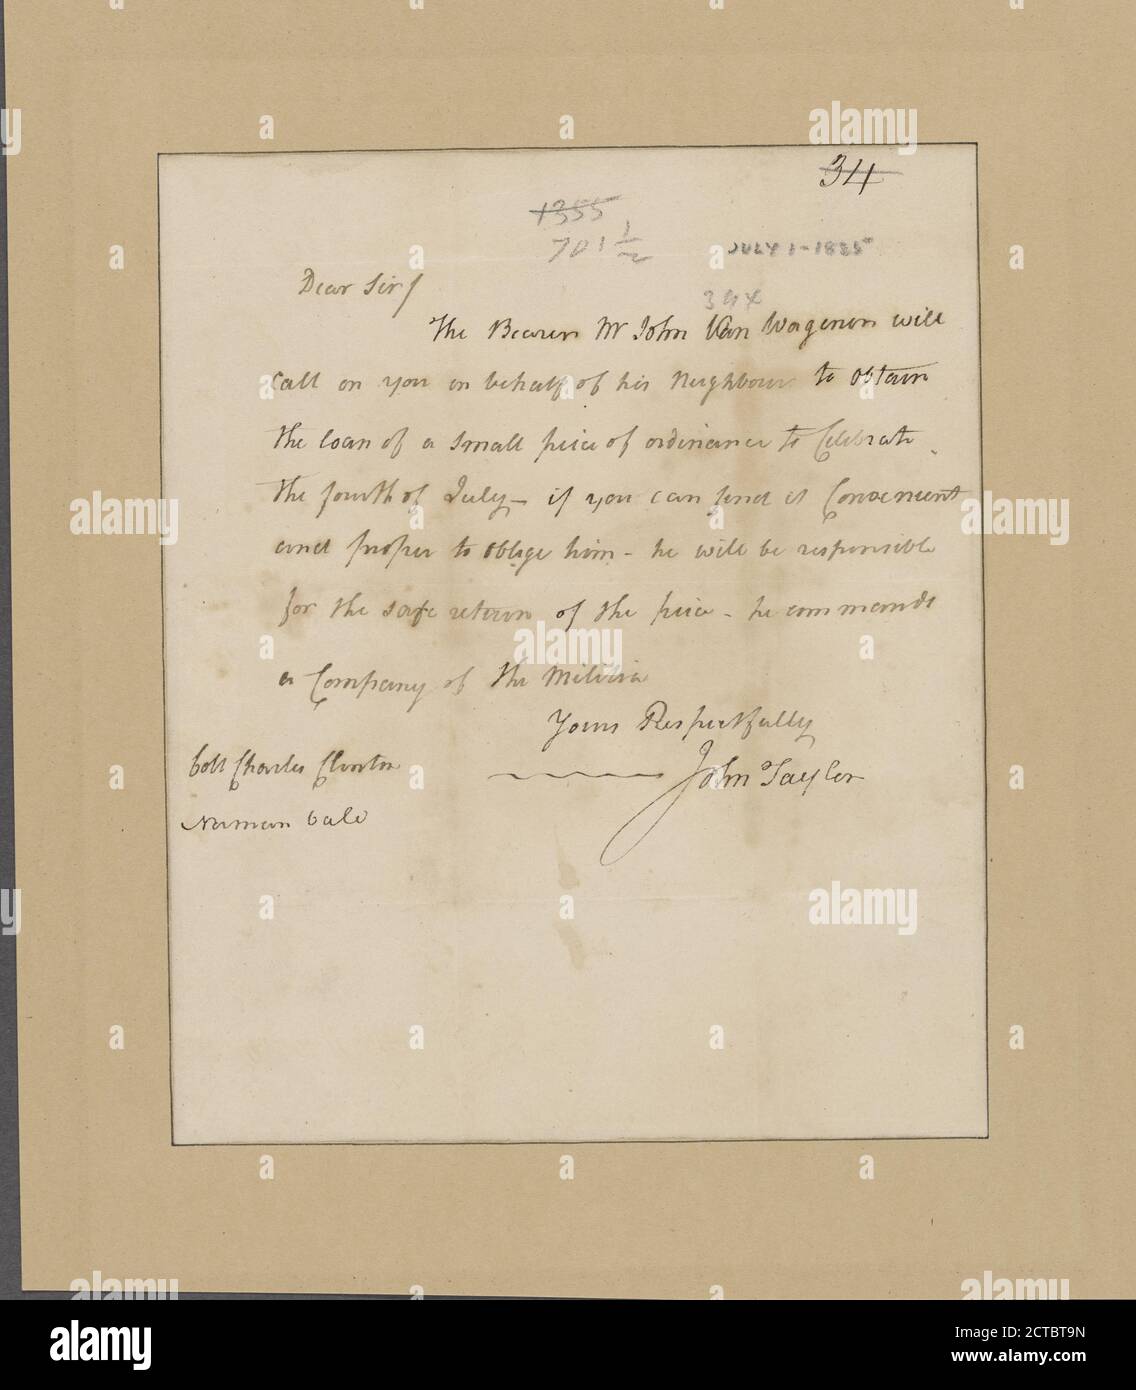 34
1355
701 1/2
JULY 1-1825
394
Dear Sir/
The Bearer Mr John Van Wagenen will
call on you on behalf of his Neighbours to obtain
the loan of a small piece of ordinance to Celebrate
the fourth of July - if you can find it Convenient
and proper to oblige him - he will be responsible
for the safe return of the piece - he commands
a Company of the Militia
Yours Respectfully
John Tayler
Coll Charles Clinton
Norman
alamy
Image ID: 2CTBT9N
www.alamy.com